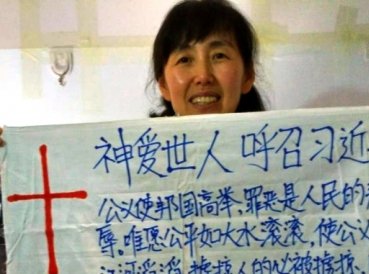 神爱世人 呼召习近
公义使邦国高举,罪恶是人民的
辱。唯愿公平如大水滚滚,使公义
江河滔滔